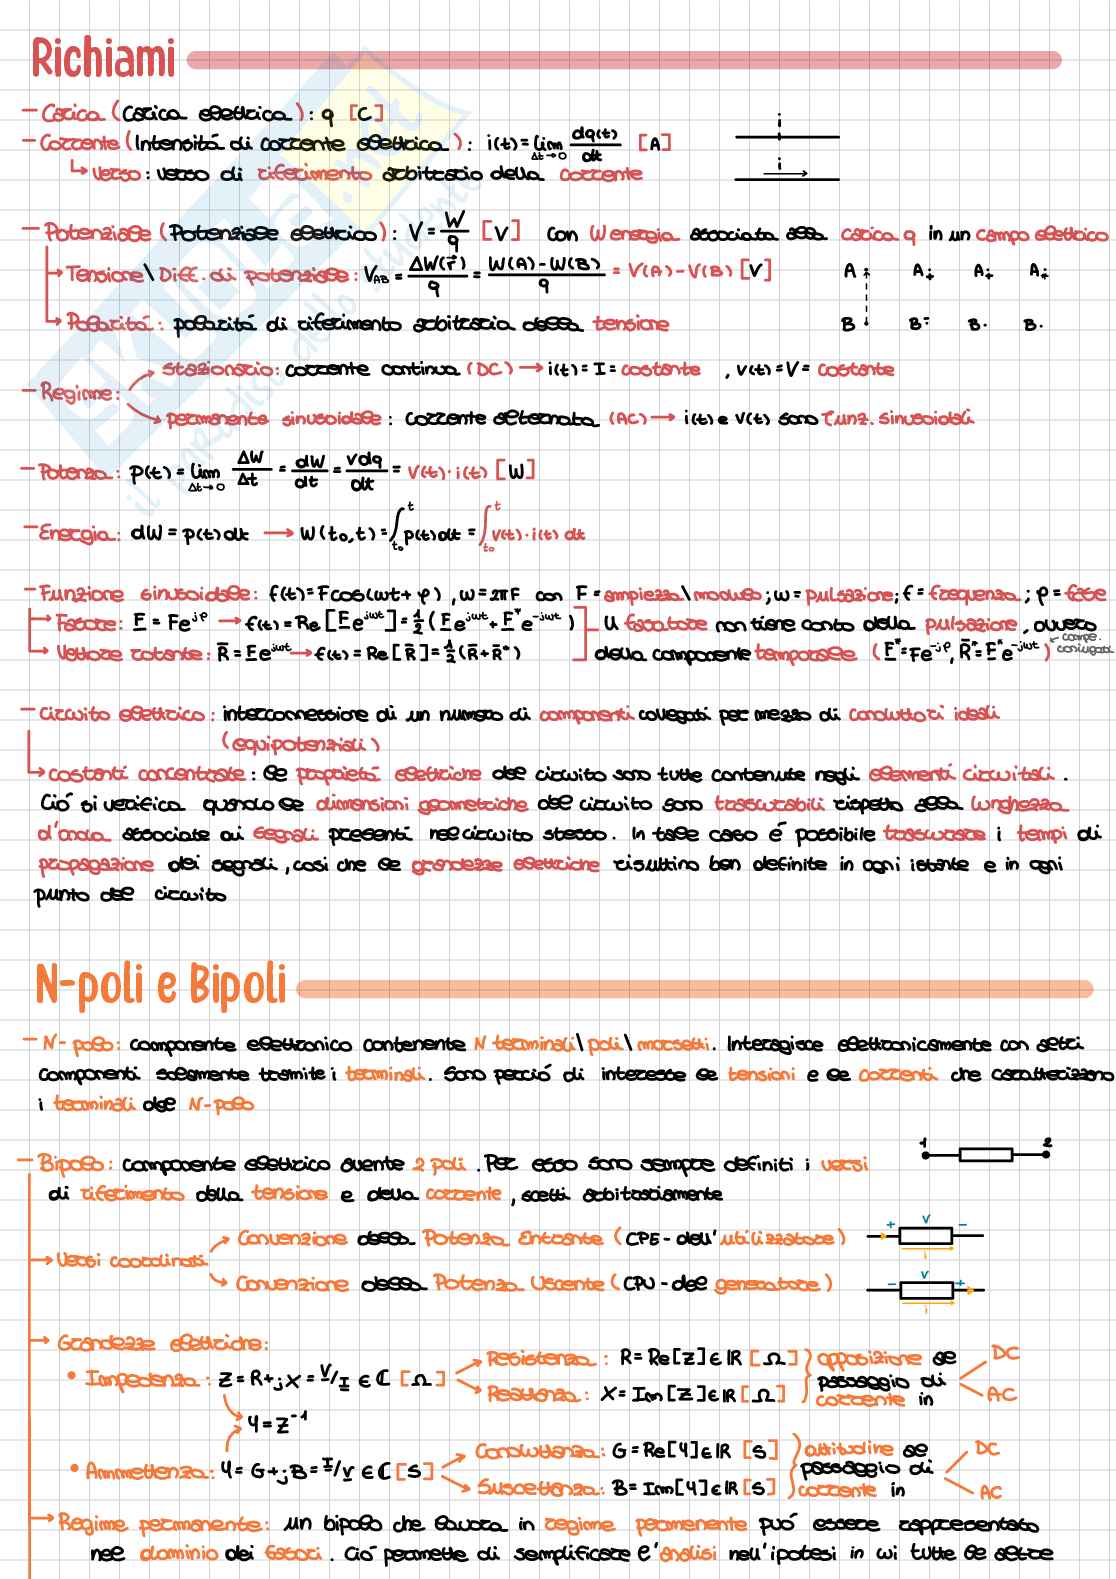 Richiami
- Carica (Carica elettrica): q [C]
- Corrente (Intensitá di corrente elettrica): i(t) = lim Δt→0 dq(t)/dt [A]
i
↳ Verso: verso di riferimento arbitrario della corrente
i
- Potenziale (Potenziale elettrico): V = W/q [V] con W energia associata alla carica q in un campo elettrico
→ Tensione\Diff. di potenziale: V_AB = ΔW(r⃗)/q = W(A)-W(B)/q = V(A)-V(B) [V]
A A+ A+ A+
→ Polaritá: polaritá di riferimento arbitraria della tensione
B B- B- B-
- Regime:
stazionario: corrente continua (DC) → i(t) = I = costante , v(t) = V = costante
permanente sinusoidale: corrente alternata (AC) → i(t) e v(t) sono funz. sinusoidali
- Potenza: p(t) = lim Δt→0 ΔW/Δt = dW/dt = vdq/dt = v(t)·i(t) [W]
- Energia: dW = p(t)dt → W(t₀,t) = ∫_t₀^t p(t)dt = ∫_t₀^t v(t)·i(t) dt
- Funzione sinusoidale: f(t) = Fcos(ωt + φ), ω = 2πf con F = ampiezza\modulo; ω = pulsazione; f = frequenza; φ = fase
→ Fasore: F = Fe^jφ → f(t) = Re[Fe^jωt] = 1/2(Fe^jωt + F*e^-jωt)
Il fasore non tiene conto della pulsazione, ovvero
→ Vettore rotante: R̄ = Fe^jωt → f(t) = Re[R̄] = 1/2(R̄+R̄*)
della componente temporale (F* = Fe^-jφ, R̄* = F*e^-jωt)
comp. coniugati
- Circuito elettrico: interconnessione di un numero di componenti collegati per mezzo di conduttori ideali
(equipotenziali)
→ costanti concentrate: le proprietá elettriche del circuito sono tutte contenute negli elementi circuitali.
Ció si verifica quando le dimensioni geometriche del circuito sono trascurabili rispetto alla lunghezza
d'onda associate ai segnali presenti nel circuito stesso. In tale caso é possibile trascurare i tempi di
propagazione dei segnali, cosí che le grandezze elettriche risultino ben definite in ogni istante e in ogni
punto del circuito
N-poli e Bipoli
- N-polo: componente elettronico contenente N terminali\poli\morsetti. Interagisce elettronicamente con altri
componenti solamente tramite i terminali. Sono perció di interesse le tensioni e le correnti che caratterizzano
i terminali del N-polo
1 2
- Bipolo: componente elettrico avente 2 poli. Per esso sono sempre definiti i versi
di riferimento della tensione e della corrente, scelti arbitrariamente
→ Versi coordinati
Convenzione della Potenza Entrante (CPE - dell'utilizzatore)
+ V -
i
Convenzione della Potenza Uscente (CPU - del generatore)
- V +
i
→ Grandezze elettriche:
• Impedenza: Z = R+jX = V/I ∈ ℂ [Ω]
Resistenza: R = Re[Z] ∈ ℝ [Ω]
Reattanza: X = Im[Z] ∈ ℝ [Ω]
opposizione al passaggio di corrente in
DC
AC
Y = Z⁻¹
• Ammettenza: Y = G+jB = I/V ∈ ℂ [S]
Conduttanza: G = Re[Y] ∈ ℝ [S]
Suscettanza: B = Im[Y] ∈ ℝ [S]
attitudine al passaggio di corrente in
DC
AC
→ Regime permanente: un bipolo che lavora in regime permanente puó essere rappresentato
nel dominio dei fasori. Ció permette di semplificare l'analisi nell'ipotesi in cui tutte le altre